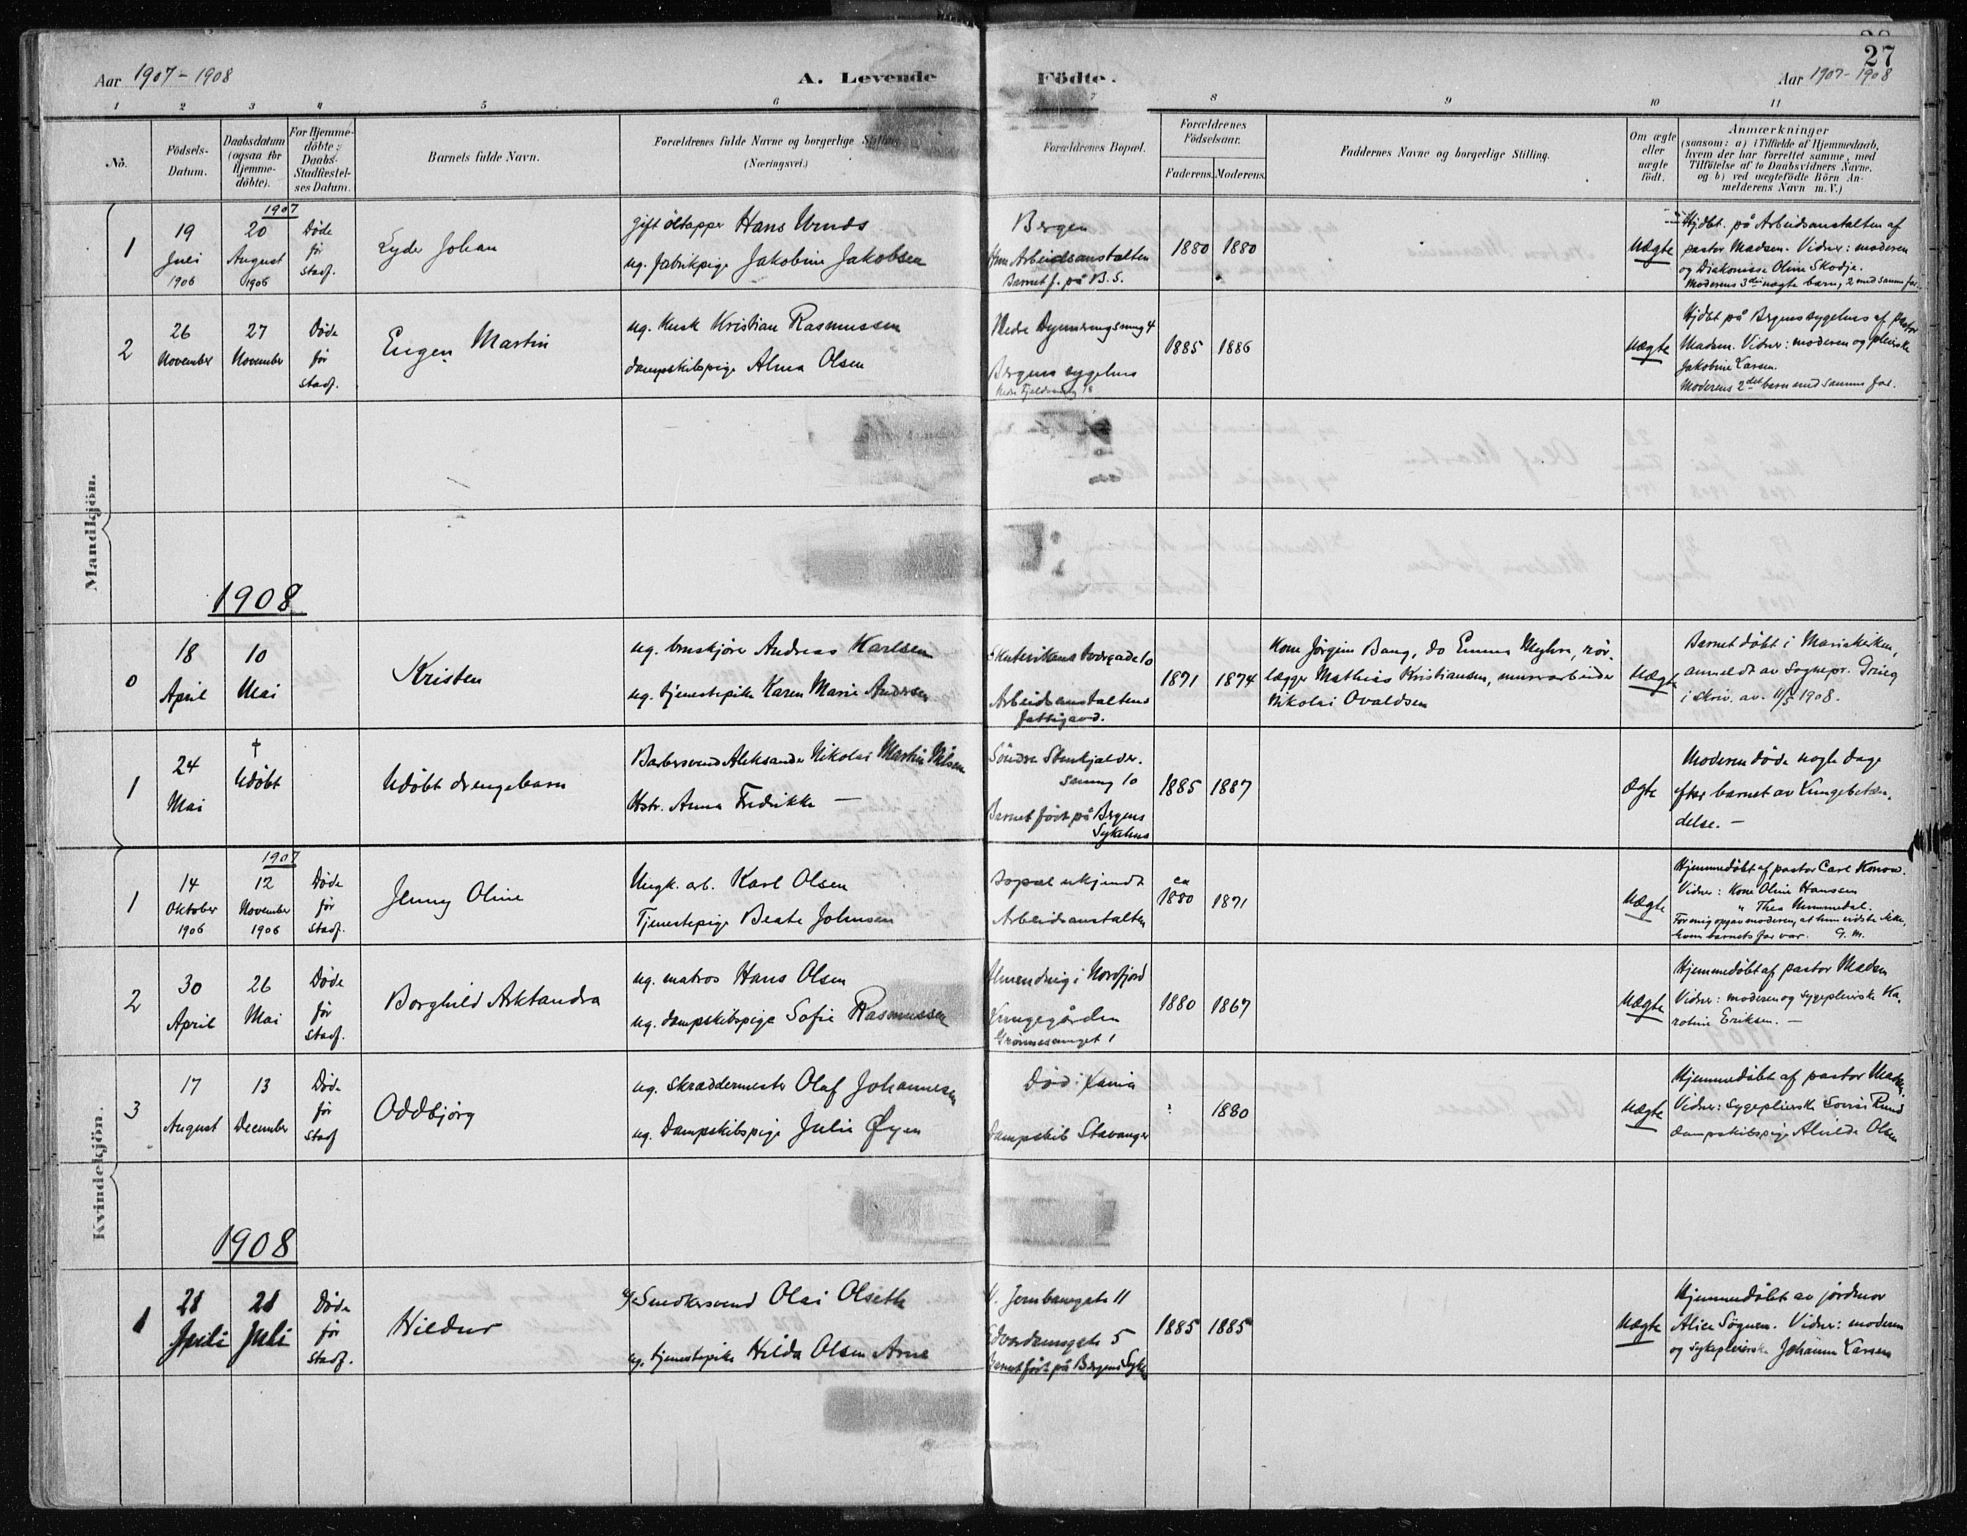 27
Aar 1907-1908
A. Levende Födte.
Aar 1907-1908
1 2 3 4 5 6 7 8 9 10 11
No.
Födsels-
Datum.
Daabsdatum
(ogsaa for
Hjemme-
döbte).
For Hjemme-
döbte:
Daabs-
Stadfæstel-
ses Datum.
Barnets fulde Navn.
Forældrenes fulde Navne og borgerlige Stilling.
(Næringsvei.)
Forældrenes Bopæl.
Forældrenes
Födselsaar.
Faderens. Moderens.
Faddernes Navne og borgerlige Stilling.
Om ægte
eller
uægte
födt.
Anmærkninger
(saasom: a) i Tilfælde af Hjemmedaab,
hvem der har forrettet samme, med
Tilföielse af to Daabsvidners Navne,
og b) ved uægtefödte Börn An-
melderens Navn m. V.)
Mandkjön.
1907
1
19
Juli
1906
20
August
1906
Døde
før
stadf.
Lyder Johan
gift øltapper Hans
ug. fabrikpige Jakobine Jakobsen
Bergen
Arbeidsanstalten
Barnet f. på B. S.
1880 1880
Uægte
Hjdbt. på Arbeidsanstalten af
pastor Madsen. Vidner: moderen
og Diakonisse Oline Skodje.
Moderens 3die uægte barn, 2 med samme far.
2
26
November
27
November
Døde
før
stadf.
Eugen Martin
ug. Kusk Kristian Rasmussen
dampskibspige Alma Olsen
Bergens sygehus
1885 1886
Uægte
Hjdbt på Bergens sygehus af pastor
Madsen. Vidner: moderen og pleierske
Jakobine Larsen.
Moderens 2det barn med samme far.
1908
0
18
April
10
Mai
Kristen
ug. bruskjører Andreas Karlsen
ug. tjenestepike Karen Marie Andersen
Arbeidsanstaltens
fattiggaard.
1871 1874
Kone Jørgine Bang, do Emma Meyhre, rør-
lægger Mathias Kristiansen, murarbeider
Nikolai Ovaldsen
Uægte
Barnet døbt i Mariakirken,
anmeldt av Sognepr. Grieg
i skriv. av 11/5 1908.
1
24
Mai
†
Udøbt
Udøbt drengebarn
Barbersvend Aleksander Nikolai Martin Nilsen
Hstr. Anna Fredrikke —
Søndre Stenkjelder-
smug 10
Barnet født på Bergens
Sykehus
1885 1887
Ægte
Moderen døde nogle dage
efter barnet av Lungebetæn-
delse. —
Kvindekjön.
1907
1
14
Oktober
1906
12
November
1906
Døde
før
stadf.
Jenny Oline
Ungk. arb. Karl Olsen
Tjenestepige Beate Johnsen
Bopæl ukjendt
Arbeidsanstalten
ca
1880 1871
Uægte
Hjemmedøbt af pastor Carl Konow.
Vidner: Kone Oline Hansen
" Thea
For mig opgav moderen, at hun vidste ikke,
hvem barnets far var. G. M.
2
30
April
26
Mai
Døde
før
stadf.
Borghild Arktandra
ug. matros Hans Olsen
ug. dampskibspige Sofie Rasmussen
i Nordfjord
Kongegården
1
1880 1867
Uægte
Hjemmedøbt af pastor Madsen
Vidner: moderen og sygepleierske Ka-
roline Eriksen. —
3
17
August
13
December
Døde
før
stadf
Oddbjørg
ug. skræddermester Olaf Johannesen
ug. Dampskibspige Julie Øyen
Død i
Dampskib Stavanger
1880
Uægte
Hjemmedøbt af pastor Madsen.
Vidner: Sygepleierske Lovise Rund
dampskibspige Alvilde Olsen
1908
1
28
April
28
Juli
Døde
før
stadf.
Hildur
Snedkersvend Olai Olseth
ug. tjenestepike Hilda Olsen Arne
Jernbanegate 11
Edvardsensgate 5
Barnet født på Bergens Sykeh
1885 1885
Uægte
Hjemmedøbt av jordmor
Alice Søgnen. Vidner: moderen
og sykepleierske Johanne Larsen